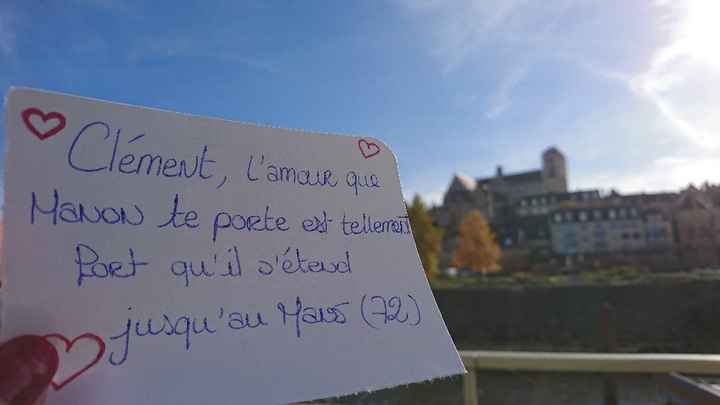 Clément, l'amour que
Manon te porte est tellement
fort qu'il s'étend
jusqu'au Mans (72)